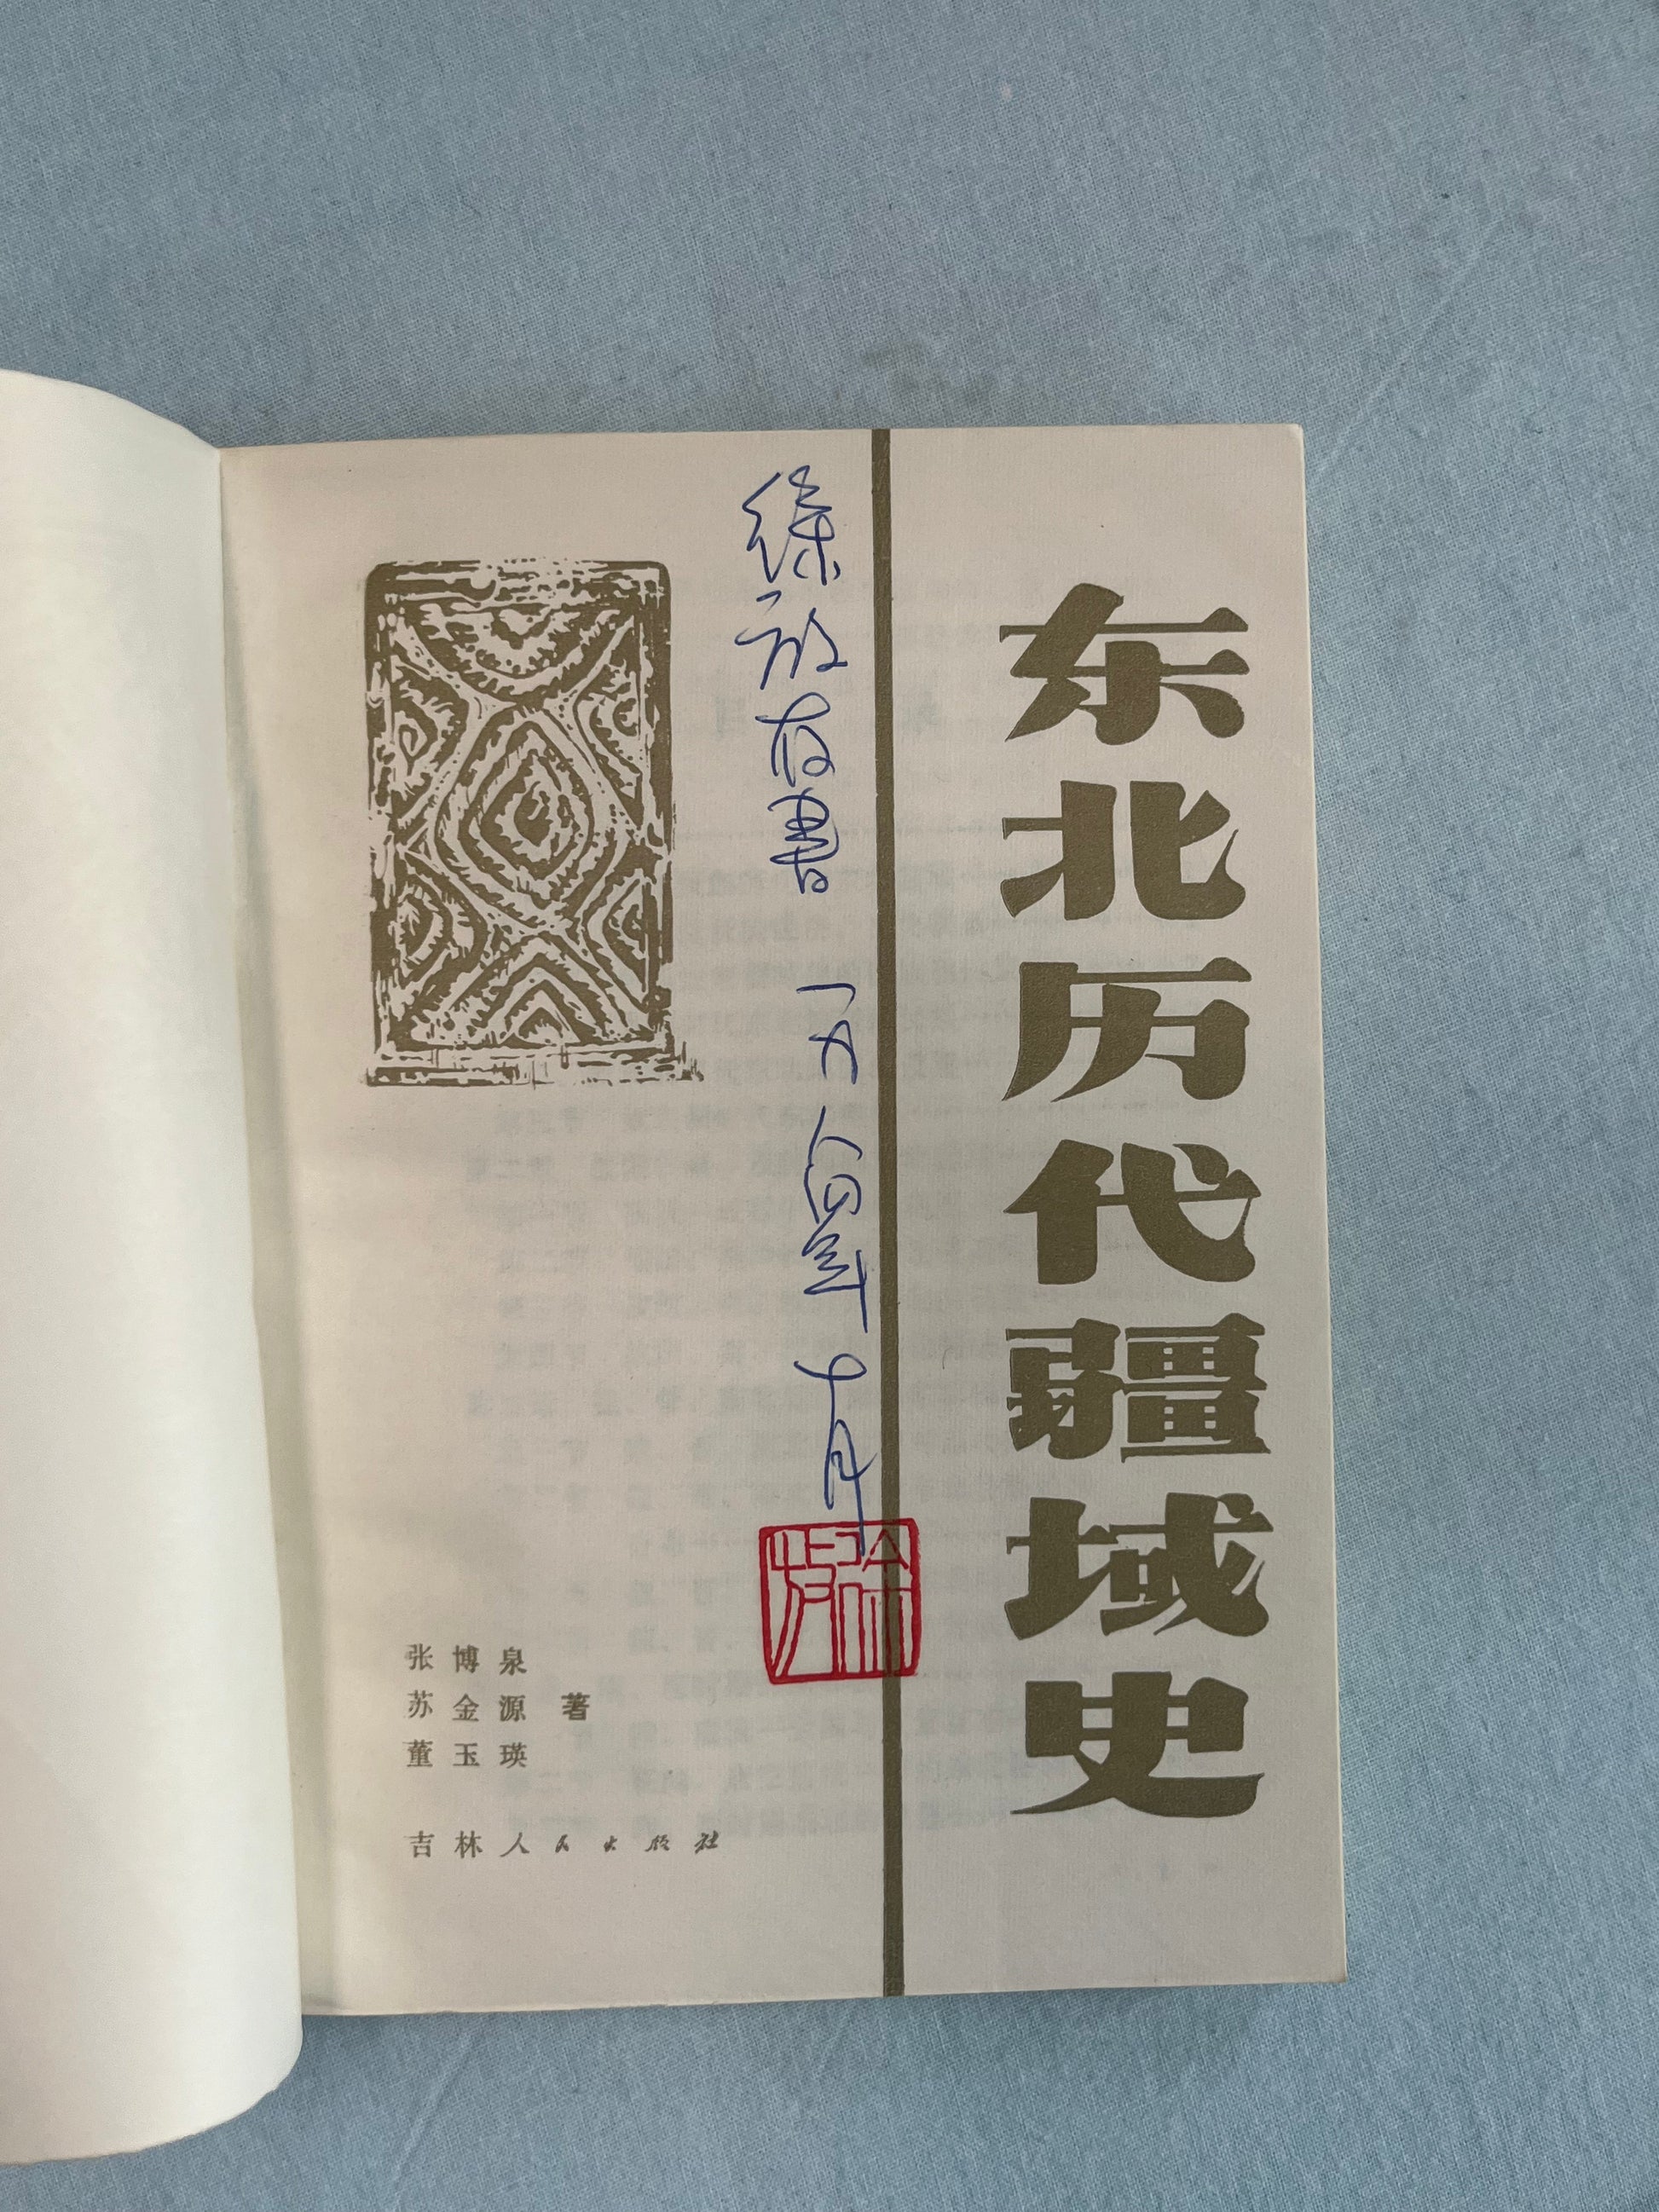 东北历代疆域史
徐放存書 一九八四年十月
徐放
张博泉
苏金源 著
董玉瑛
吉林人民出版社